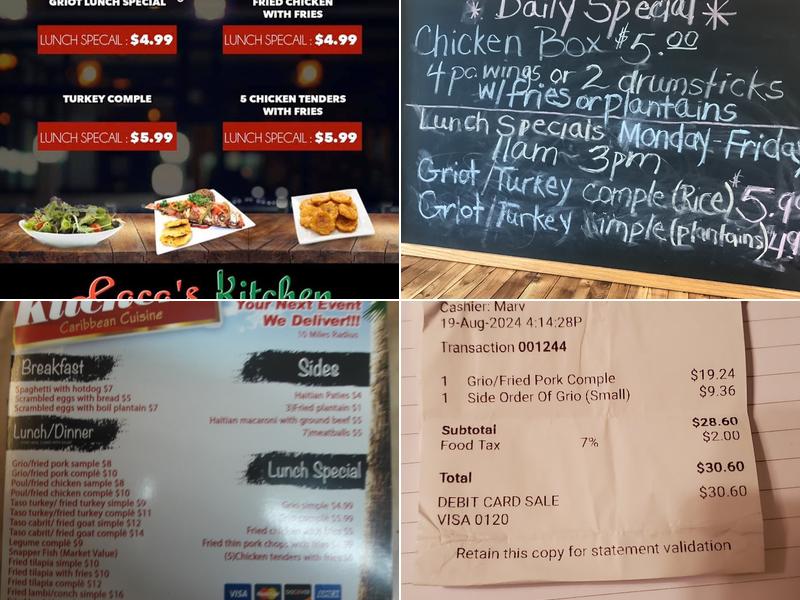 GRIOT LUNCH SPECIAL
FRIED CHICKEN
WITH FRIES
LUNCH SPECAIL : $4.99
LUNCH SPECAIL : $4.99
TURKEY COMPLE
5 CHICKEN TENDERS
WITH FRIES
LUNCH SPECAIL : $5.99
LUNCH SPECAIL : $5.99
Kitchen
* Daily Special *
Chicken Box $5.00
4 pc. wings or 2 drumsticks
w/fries or plantains
Lunch Specials Monday-Friday
11am - 3pm
Griot/Turkey comple (Rice) $5.99
Griot/Turkey simple (plantains)
Caribbean Cuisine
Your Next Event
We Deliver!!!
10 Miles Radius
Breakfast
Spaghetti with hotdog $7
Scrambled eggs with bread $5
Scrambled eggs with boil plantain $7
Lunch/Dinner
Grio/fried pork sample $8
Grio/fried pork complè $10
Poul/fried chicken sample $8
Poul/fried chicken complè $10
Taso turkey/ fried turkey simple $9
Taso turkey/fried turkey complè $11
Taso cabrit/ fried goat simple $12
Taso cabrit/ fried goat complè $14
Legume complè $9
Snapper Fish (Market Value)
Fried tilapia simple $10
Fried tilapia with fries $10
Fried tilapia complè $12
Fried lambi/conch simple $16
Sides
Haitian Paties $4
3)Fried plantain $1
Haitian macaroni with ground beef $5
7)meatballs $5
Lunch Special
Grio simple $4.99
complè $5.99
Fried chicken with fries $5
Fried thin pork chops with fries
(5)Chicken tenders with fries
VISA
MasterCard
DISCOVER
Cashier: Marv
19-Aug-2024 4:14:28P
Transaction 001244
1 Grio/Fried Pork Comple $19.24
1 Side Order Of Grio (Small) $9.36
Subtotal $28.60
Food Tax 7% $2.00
Total $30.60
DEBIT CARD SALE $30.60
VISA 0120
Retain this copy for statement validation